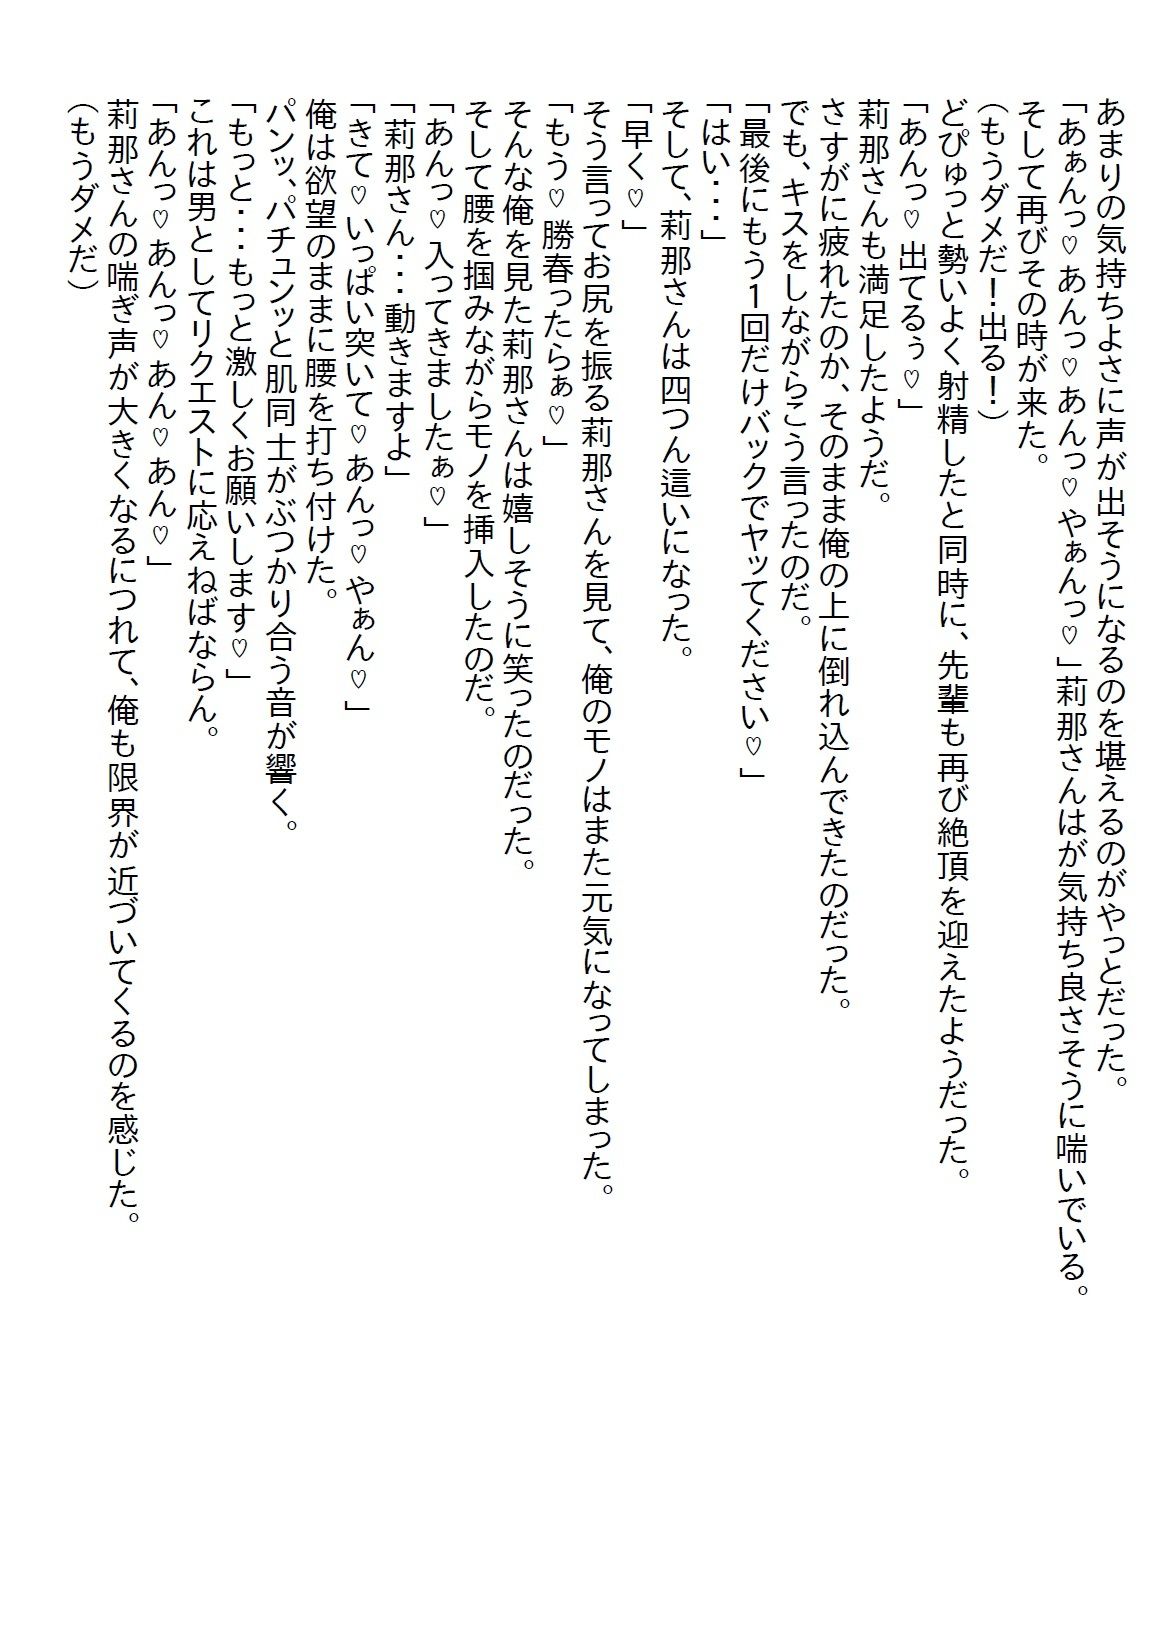 あまりの気持ちよさに声が出そうになるのを堪えるのがやっとだった。
「あぁんっ♡あんっ♡あんっ♡やぁんっ♡」莉那さんはが気持ち良さそうに喘いでいる。
そして再びその時が来た。
（もうダメだ！出る！）
どぴゅっと勢いよく射精したと同時に、先輩も再び絶頂を迎えたようだった。
「あんっ♡出てるぅ♡」
莉那さんも満足したようだ。
さすがに疲れたのか、そのまま俺の上に倒れ込んできたのだった。
でも、キスをしながらこう言ったのだ。
「最後にもう1回だけバックでヤッてください♡」
「はい・・・」
そして、莉那さんは四つん這いになった。
「早く♡」
そう言ってお尻を振る莉那さんを見て、俺のモノはまた元気になってしまった。
「もう♡勝春ったらぁ♡」
そんな俺を見た莉那さんは嬉しそうに笑ったのだった。
そして腰を掴みながらモノを挿入したのだ。
「あんっ♡入ってきましたぁ♡」
「莉那さん・・・動きますよ」
「きて♡いっぱい突いて♡あんっ♡やぁん♡」
俺は欲望のままに腰を打ち付けた。
パンッ、パチュンッと肌同士がぶつかり合う音が響く。
「もっと・・・もっと激しくお願いします♡」
これは男としてリクエストに応えねばならん。
「あんっ♡あんっ♡あん♡あん♡」
莉那さんの喘ぎ声が大きくなるにつれて、俺も限界が近づいてくるのを感じた。
（もうダメだ）